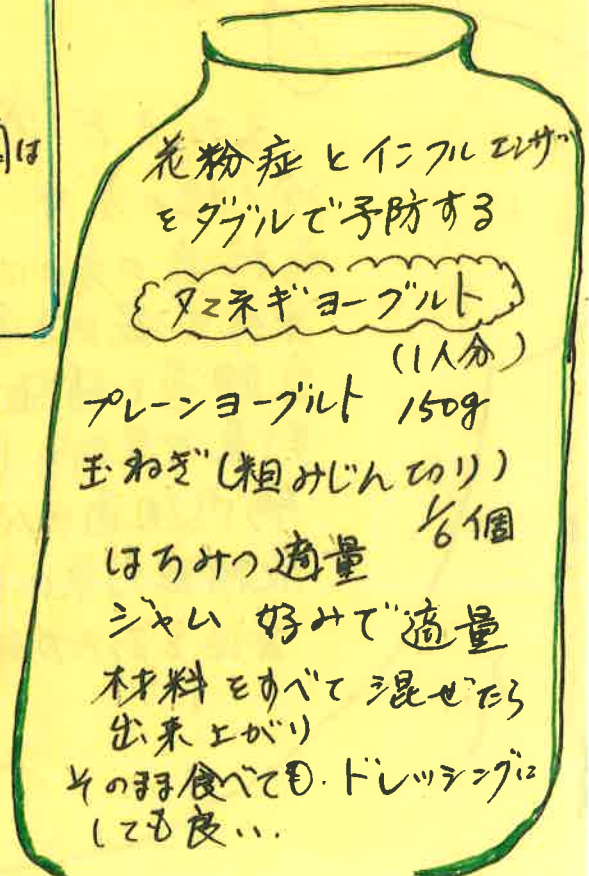 は
花粉症とインフルエンザ
をダブルで予防する
タマネギヨーグルト
(1人分)
プレーンヨーグルト 150g
玉ねぎ(粗みじん切り)
1/6個
はちみつ適量
ジャム 好みで適量
材料をすべて混ぜたら
出来上がり
そのまま食べても.ドレッシングに
しても良い.